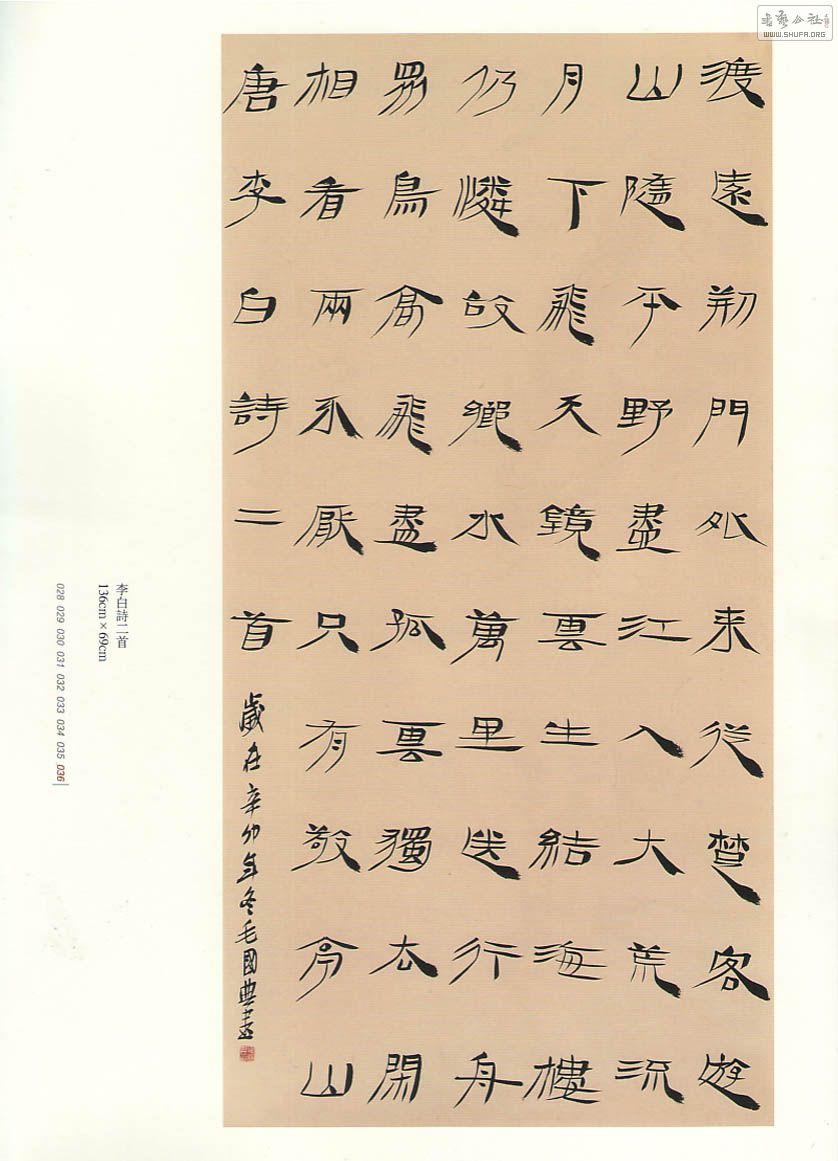 渡遠荊門外来從楚客遊
山隨平野盡江入大荒流
月下飛天鏡雲生結海樓
仍憐故鄉水萬里送行舟
眾鳥高飛盡孤雲獨去閑
相看兩不厭只有敬亭山
唐李白詩二首
歲在辛卯年冬毛國典書
李白詩二首
136cm×69cm
028 029 030 031 032 033 034 035 036
书藝公社
WWW.SHUFA.ORG